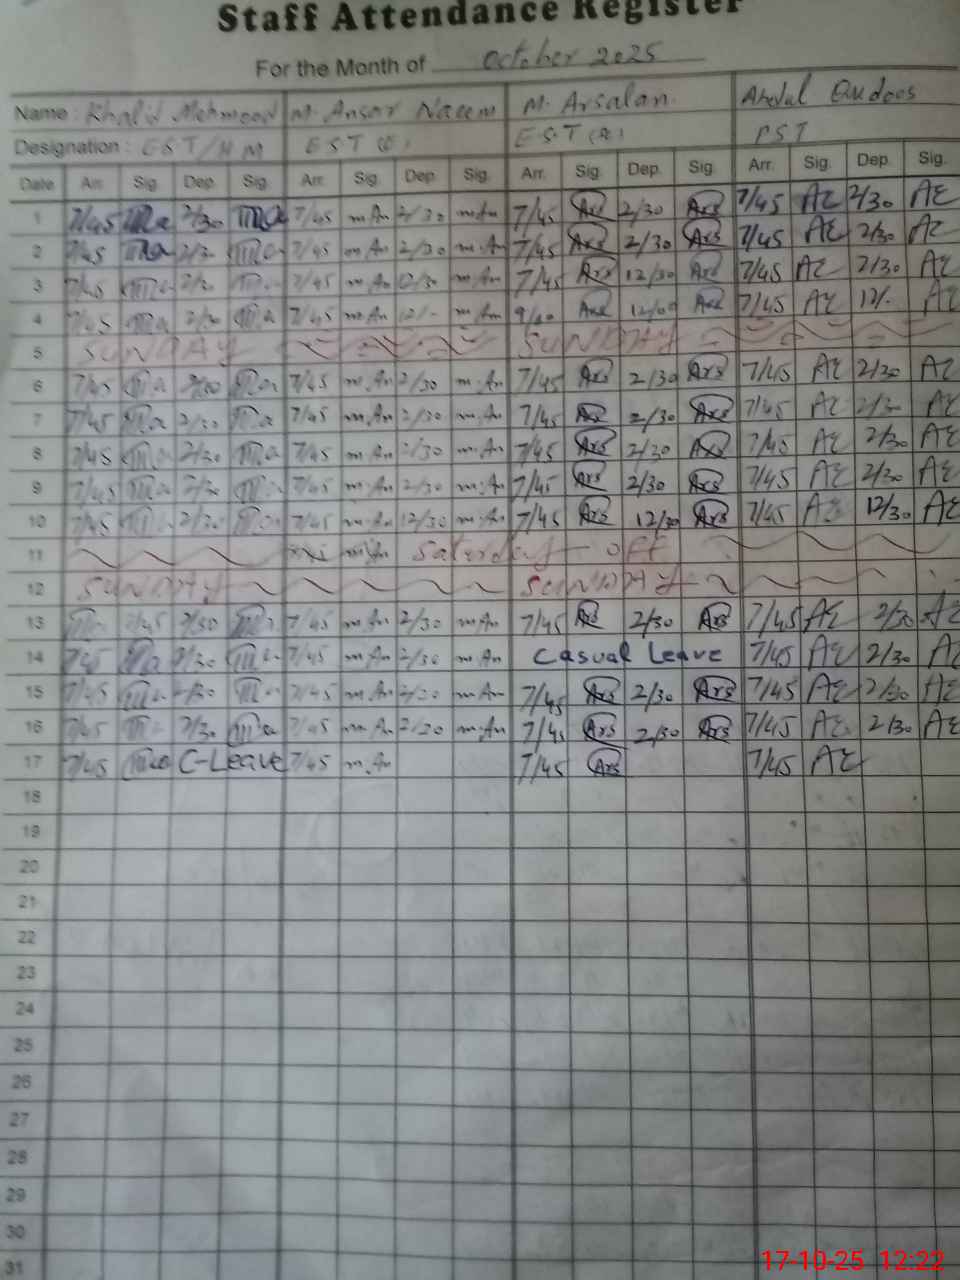 Staff Attendance Register
For the Month of October 2025
Name : Khalid Mehmood M. Ansar Naeem M. Arsalan. Abdul Qudoos
Designation : EST/HM EST(E) EST(R) PST
Date Arr. Sig. Dep. Sig. Arr. Sig. Dep. Sig. Arr. Sig. Dep. Sig. Arr. Sig. Dep. Sig.
1 7/45 2/30 7/45 m.An 2/30 m.An 7/45 Ars 2/30 Ars 7/45 AE 2/30 AE
2 7/45 2/30 7/45 m.An 2/30 m.An 7/45 Ars 2/30 Ars 7/45 AE 2/30 AE
3 7/45 2/30 7/45 m.An 7/45 Ars 12/30 Ars 7/45 AE 2/30 AE
4 7/45 2/30 7/45 m.An 12/- m.An 9/40 Ars 12/00 Ars 7/45 AE 12/- AE
5 SUNDAY SUNDAY
6 7/45 7/45 m.An 2/30 m.An 7/45 Ars 2/30 Ars 7/45 AE 2/30 AE
7 7/45 2/30 7/45 m.An 2/30 m.An 7/45 Ars 2/30 Ars 7/45 AE 2/30 AE
8 7/45 2/30 7/45 m.An 2/30 m.An 7/45 Ars 2/30 Ars 7/45 AE 2/30 AE
9 7/45 2/30 7/45 m.An 2/30 m.An 7/45 Ars 2/30 Ars 7/45 AE 2/30 AE
10 7/45 2/30 7/45 m.An 12/30 m.An 7/45 Ars 12/30 Ars 7/45 AE 12/30 AE
11 Saturday - off
12 SUNDAY SUNDAY
13 7/45 2/30 7/45 m.An 2/30 m.An 7/45 Ars 2/30 Ars 7/45 AE 2/30 AE
14 7/45 2/30 7/45 m.An 2/30 m.An Casual Leave 7/45 AE 2/30 AE
15 7/45 2/30 7/45 m.An 2/30 m.An 7/45 Ars 2/30 Ars 7/45 AE 2/30 AE
16 7/45 2/30 7/45 m.An 2/30 m.An 7/45 Ars 2/30 Ars 7/45 AE 2/30 AE
17 7/45 C-Leave 7/45 m.An 7/45 Ars 7/45 AE
18
19
20
21
22
23
24
25
26
27
28
29
30
31
17-10-25 12:22